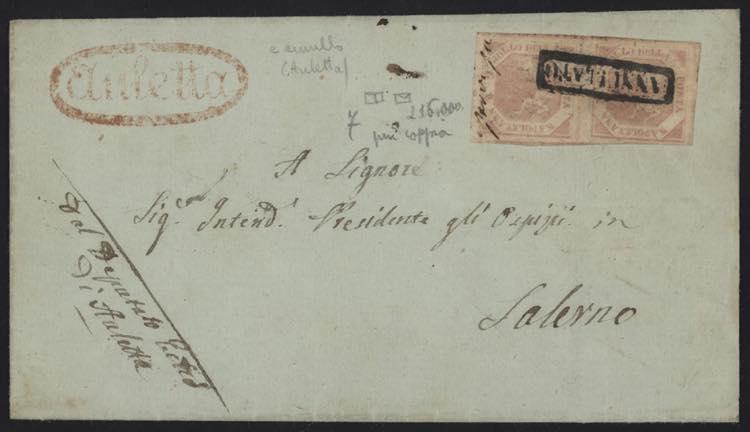 Auletta
e annullo
(Auletta)
7 215.000
più coppia
ANNULLATO
NAPOLETANA
NAPOLETANA
A Signore
Sig.r Intend.e Presidente gli Ospizi in
Salerno
Dal Deputato
Di Auletta